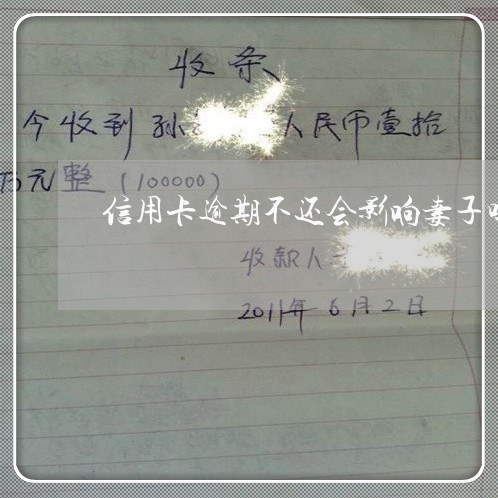 收条
今收到孙 人民币壹拾
万元整(100000)
信用卡逾期不还会影响妻子
收款人
2011年6月2日